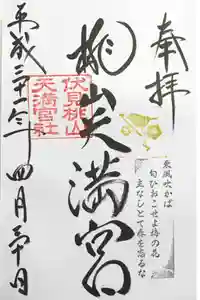 奉拝
桃山天満宮
伏見桃山
天満宮社
平成三十一年四月三十日
東風吹かば
匂ひおこせよ梅の花
主なしとて春を忘るな